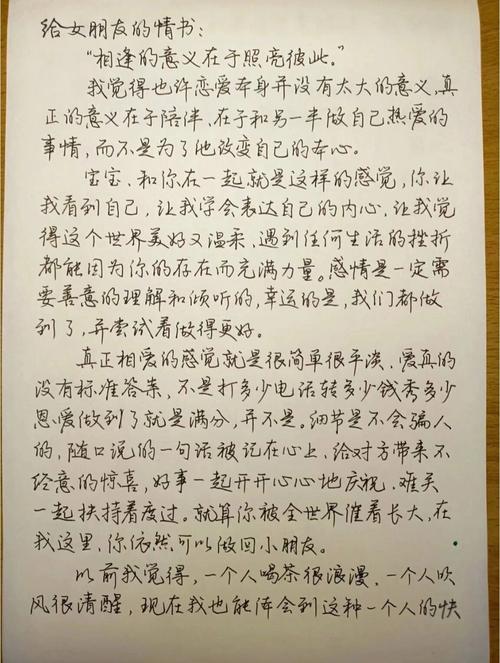 给女朋友的情书：
“相逢的意义在于照亮彼此。”
我觉得也许恋爱本身并没有太大的意义，真
正的意义在于陪伴，在于和另一半做自己热爱的
事情，而不是为了他改变自己的本心。
宝宝、和你在一起就是这样的感觉，你让
我看到自己，让我学会表达自己的内心，让我觉
得这个世界美好又温柔，遇到任何生活的挫折
都能因为你的存在而充满力量。感情是一定需
要善意的理解和倾听的，幸运的是，我们都做
到了，并尝试着做得更好。
真正相爱的感觉就是很简单很平淡、爱真的
没有标准答案，不是打多少电话转多少钱秀多少
恩爱做到了就是满分，并不是。细节是不会骗人
的，随口说的一句话被记在心上、给对方带来不
经意的惊喜，好事一起开开心心地庆祝、难关
一起扶持着度过。就算你被全世界催着长大，在
我这里，你依然可以做回小朋友。
以前我觉得，一个人喝茶很浪漫、一个人吹
风很清醒，现在我也能体会到这种一个人的快